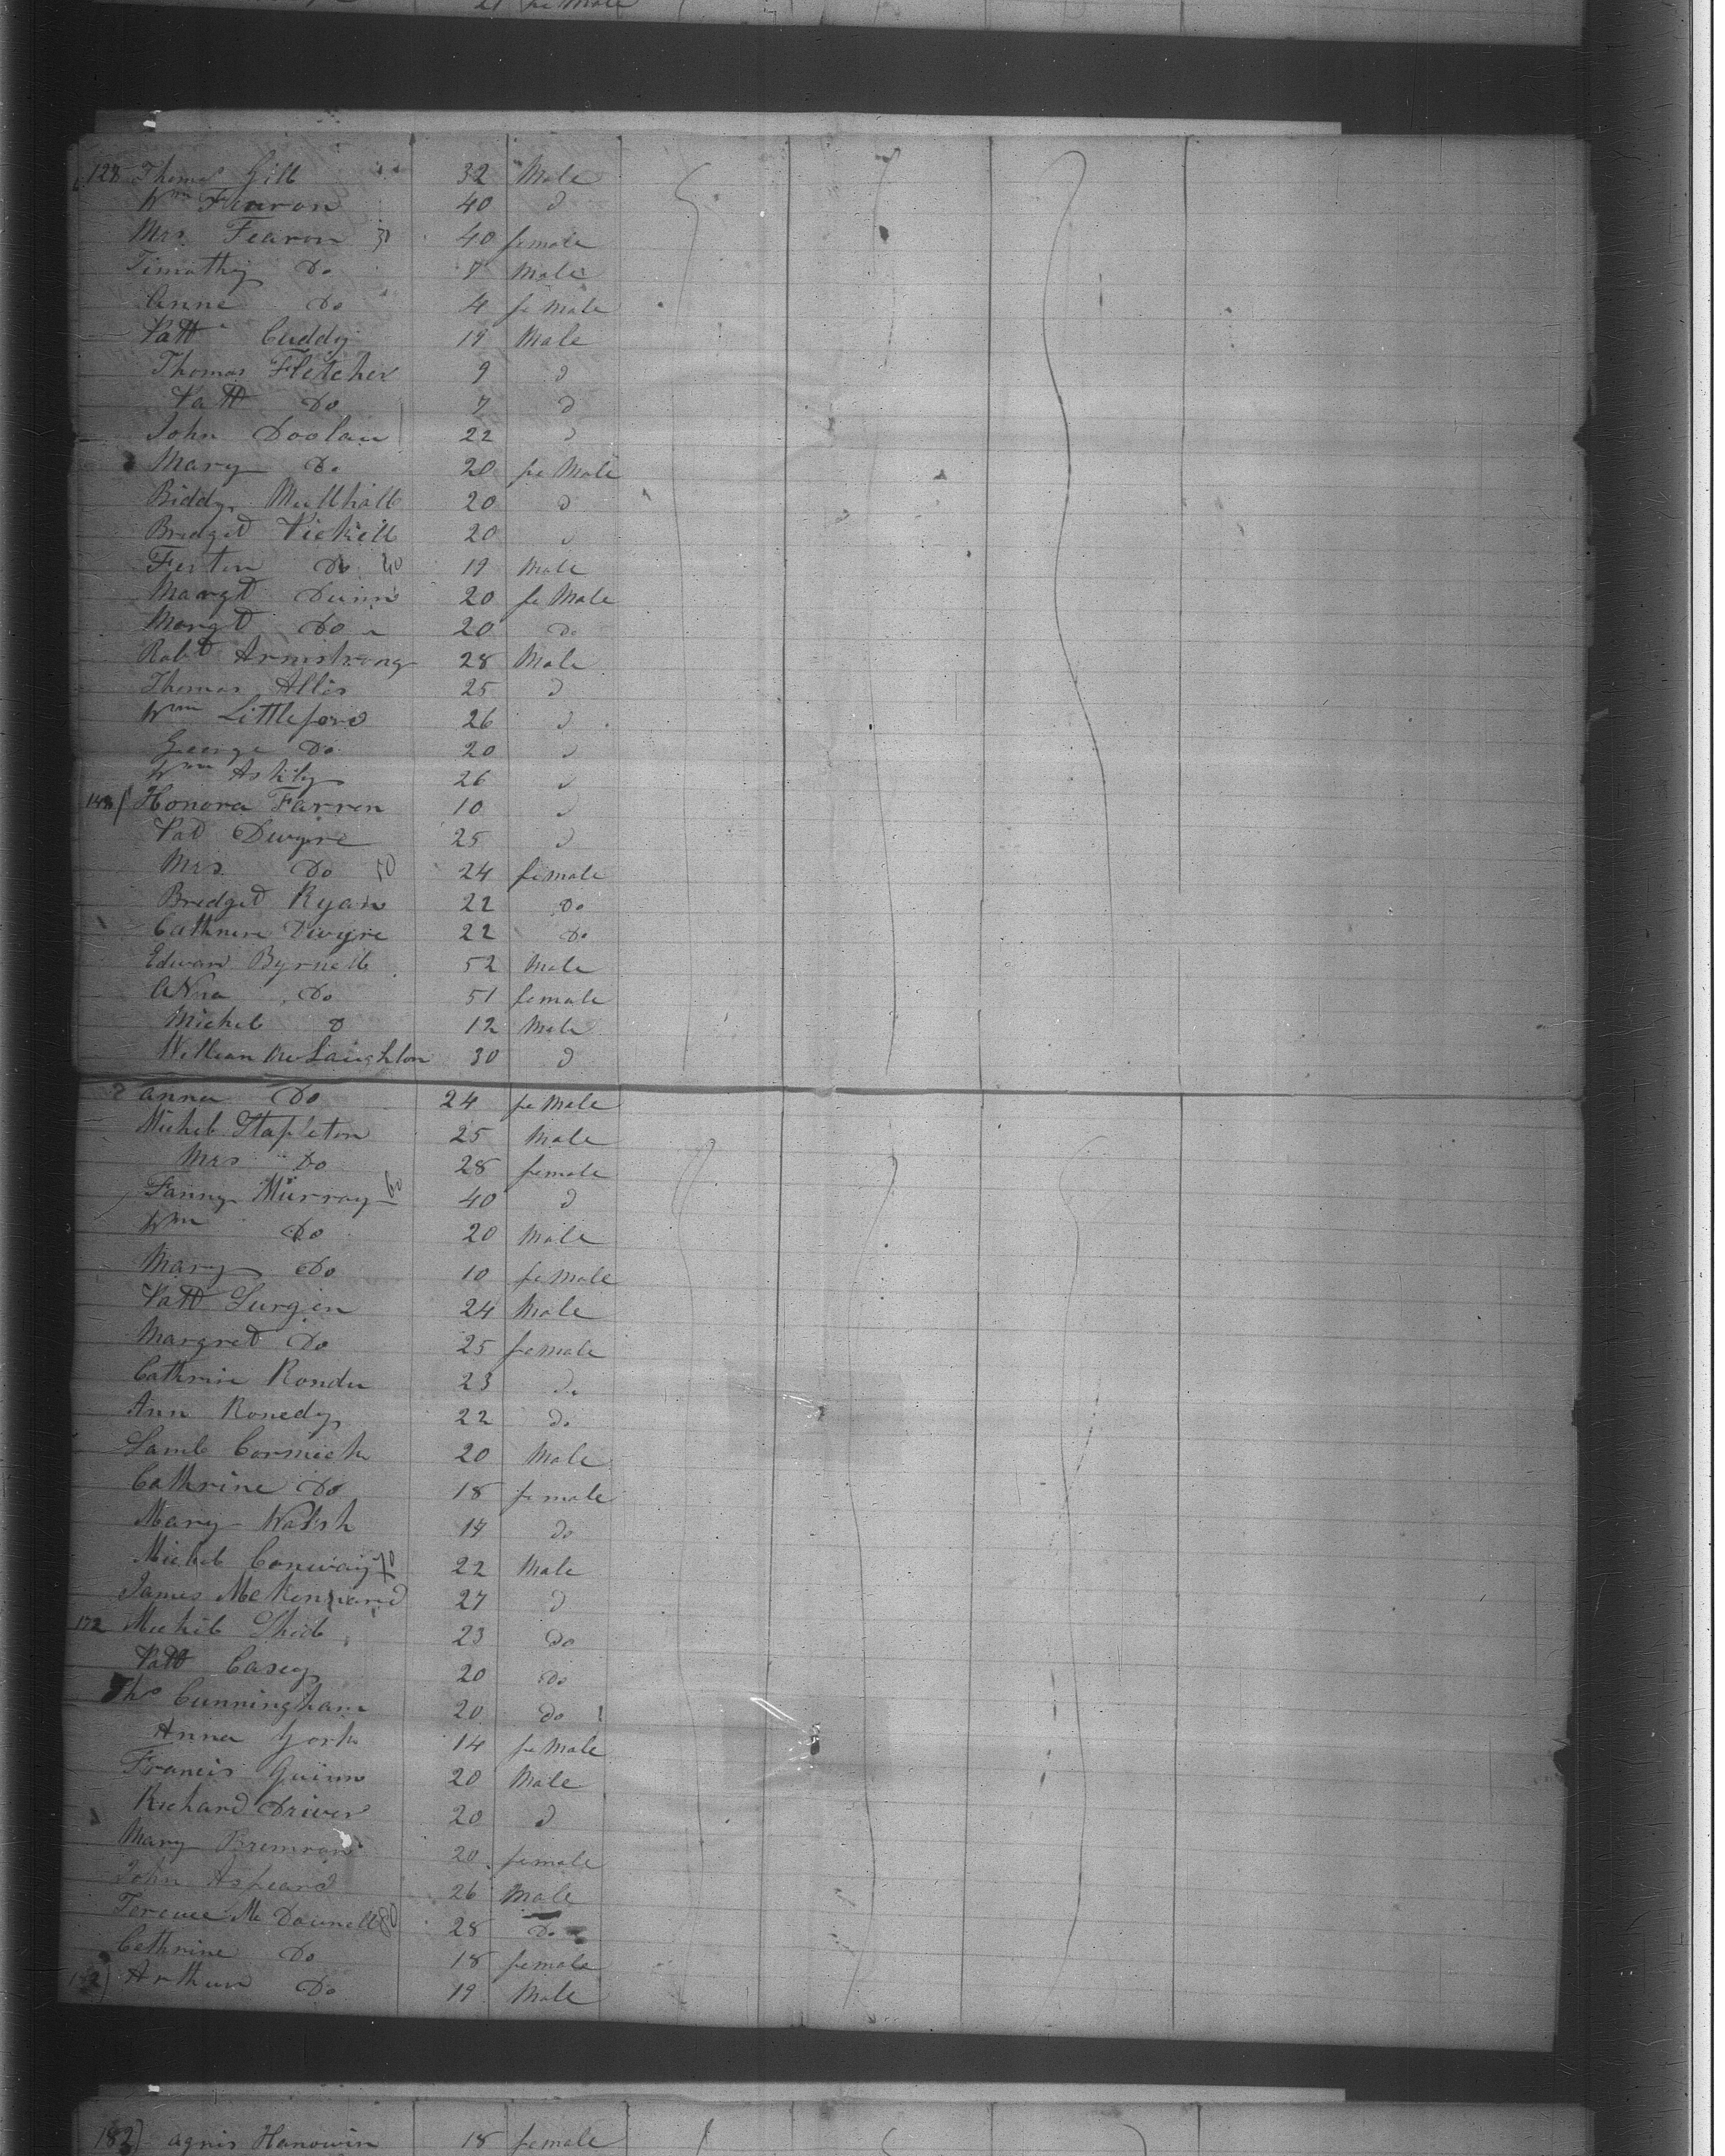 21 fe Male
128 Thomas Gill 32 Male
Wm Fearon 40 d
Mrs. Fearon 30 40 female
Timothy Do 7 Male
Anne Do 4 fe Male
Patt Cuddy 19 Male
Thomas Fletcher 9 d
Patt Do 7 d
John Doolan 22 d
Mary Do 20 fe Male
Biddy Mullhall 20 d
Bridget 20 d
Do 40 19 Male
Margt Dunn 20 fe Male
Margt Do 20 Do
Robt Armstrong 28 Male
Thomas Allis 25 d
Wm Littleford 26 d
George Do 20 d
Wm Ashly 26 d
148 Honora Farren 10 d
Pat Dwyre 25 d
Mrs. Do 50 24 female
Bridget Ryan 22 Do
Cathrine Dwyre 22 Do
Edward Byrnell 52 Male
Anna Do 51 female
Michel D 12 Male
William McLaughlon 30 d
Anna Do 24 fe Male
Michel Stapleton 25 Male
Mrs Do 28 female
Fanny Murray 60 40 d
Wm Do 20 Male
Mary Do 10 fe Male
Patt Lurgin 24 Male
Margret Do 25 fe Male
Cathrine 23 Do
Ann Konedy 22 Do
Cormick 20 Male
Cathrine Do 18 female
Mary Walsh 17 do
Michel Conway 70 22 Male
James 27 d
172 Michel 23 Do
Patt Casey 20 Do
Thos Cunningham 20 Do
Anna York 14 fe Male
Francis Quinn 20 Male
Richard Driver 20 d
Mary 20 female
John 26 Male
Terence Mc Donnell 80 28 Do
Cathrine Do 18 female
Arthur Do 19 Male
182) Agnis Hanowin 18 female